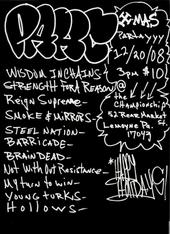 X-MAS
Partayyy
12/20/08
3pm $10
@
the
Championship
52 Rear Market St.
Lemoyne Pa.
17043
Wisdom In Chains
Strength For A Reason
Reign Supreme-
Smoke & Mirrors-
Steel Nation-
Barricade-
Braindead-
Not Without Resistance-
My Turn To Win-
Young Turks-
Hollows-
Happy